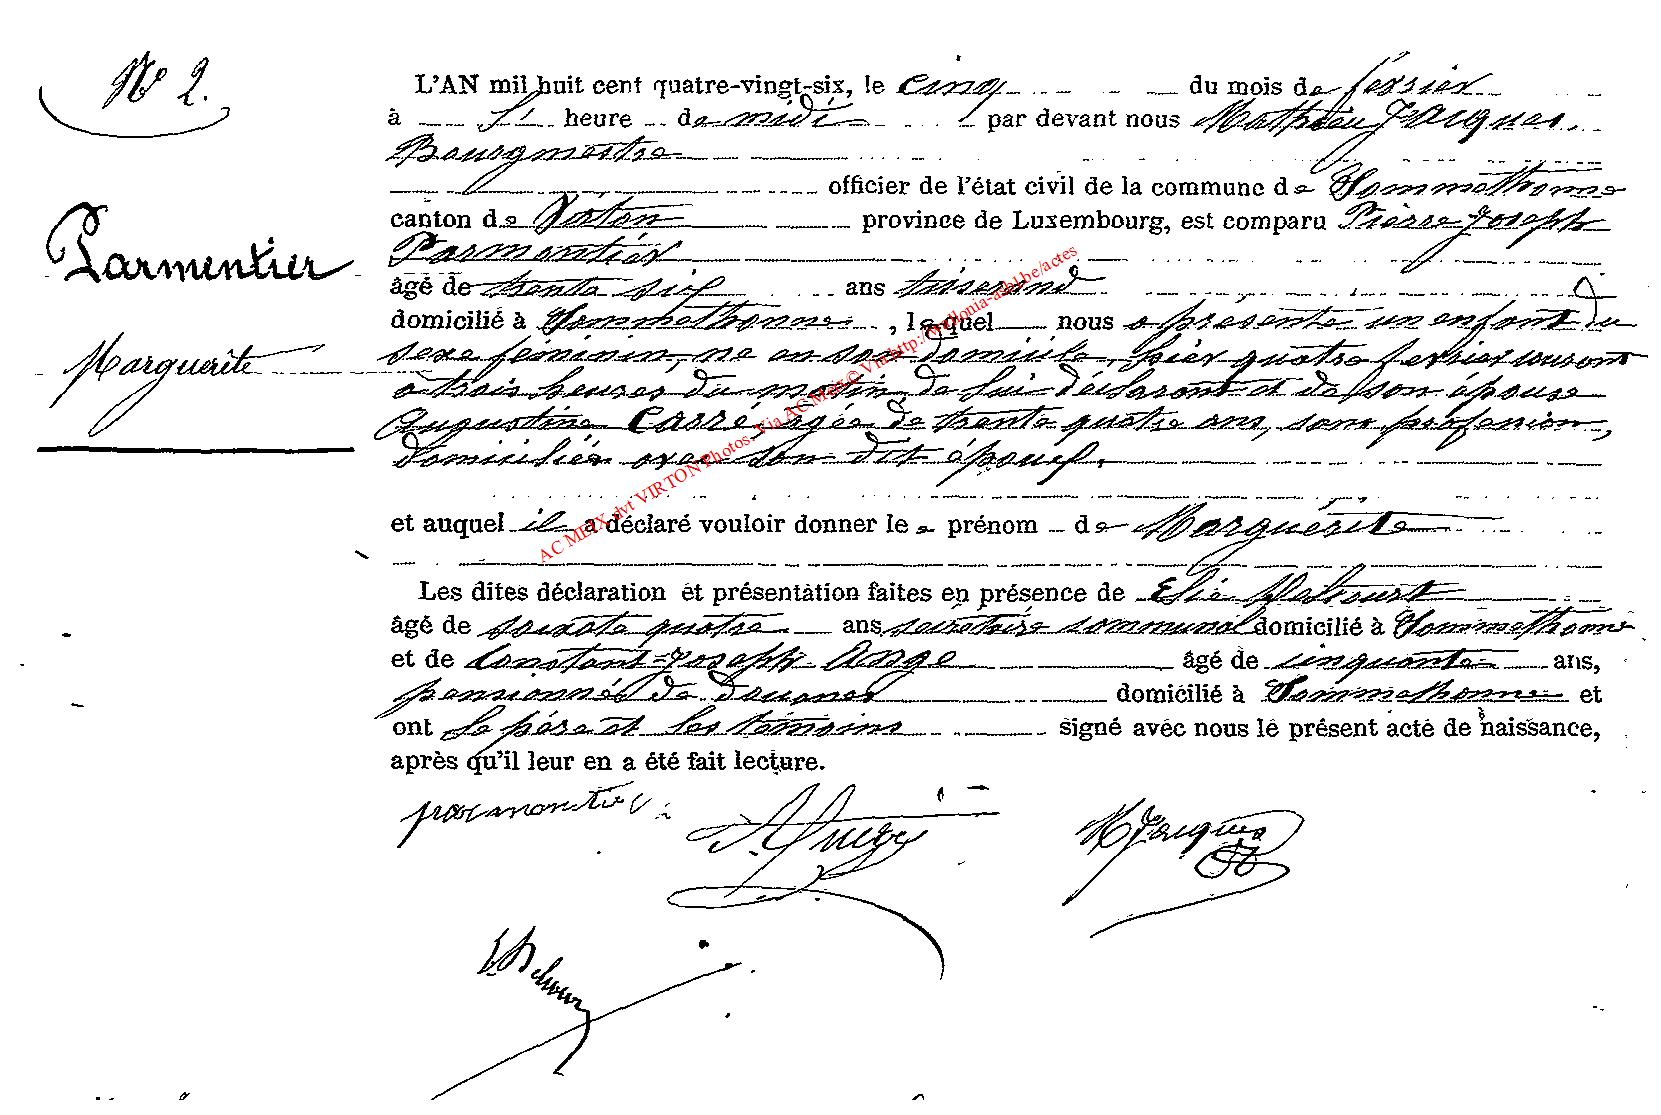 N° 2.
Parmentier
Marguerite
L'AN mil huit cent quatre-vingt-six, le cinq du mois de février
à heure de midi par devant nous Mathieu Jacques,
Bourgmestre
officier de l'état civil de la commune de Sommethonne
canton de Virton province de Luxembourg, est comparu Pierre Joseph
Parmentier
âgé de trente six ans tisserand
domicilié à Sommethonne, lequel nous a présenté un enfant du
sexe féminin, né en son domicile, hier quatre février courant
à trois heures du matin, de lui déclarant et de son épouse
Augustine Carré, agée de trente quatre ans, sans profession,
domiciliée avec son dit époux.
et auquel il a déclaré vouloir donner le prénom de Marguérite
Les dites déclaration et présentation faites en présence de Elie
âgé de soixante quatre ans secrétaire communal domicilié à Sommethonne
et de Constant-Joseph Ange âgé de cinquante ans,
pensionné de douanes domicilié à Sommethonne et
ont le père et les témoins signé avec nous le présent acte de naissance,
après qu'il leur en a été fait lecture.
parmentier
M Jacques
AC MEIX dvt VIRTON Photos. Via AC Meix
http://wallonia-asbl.be/actes